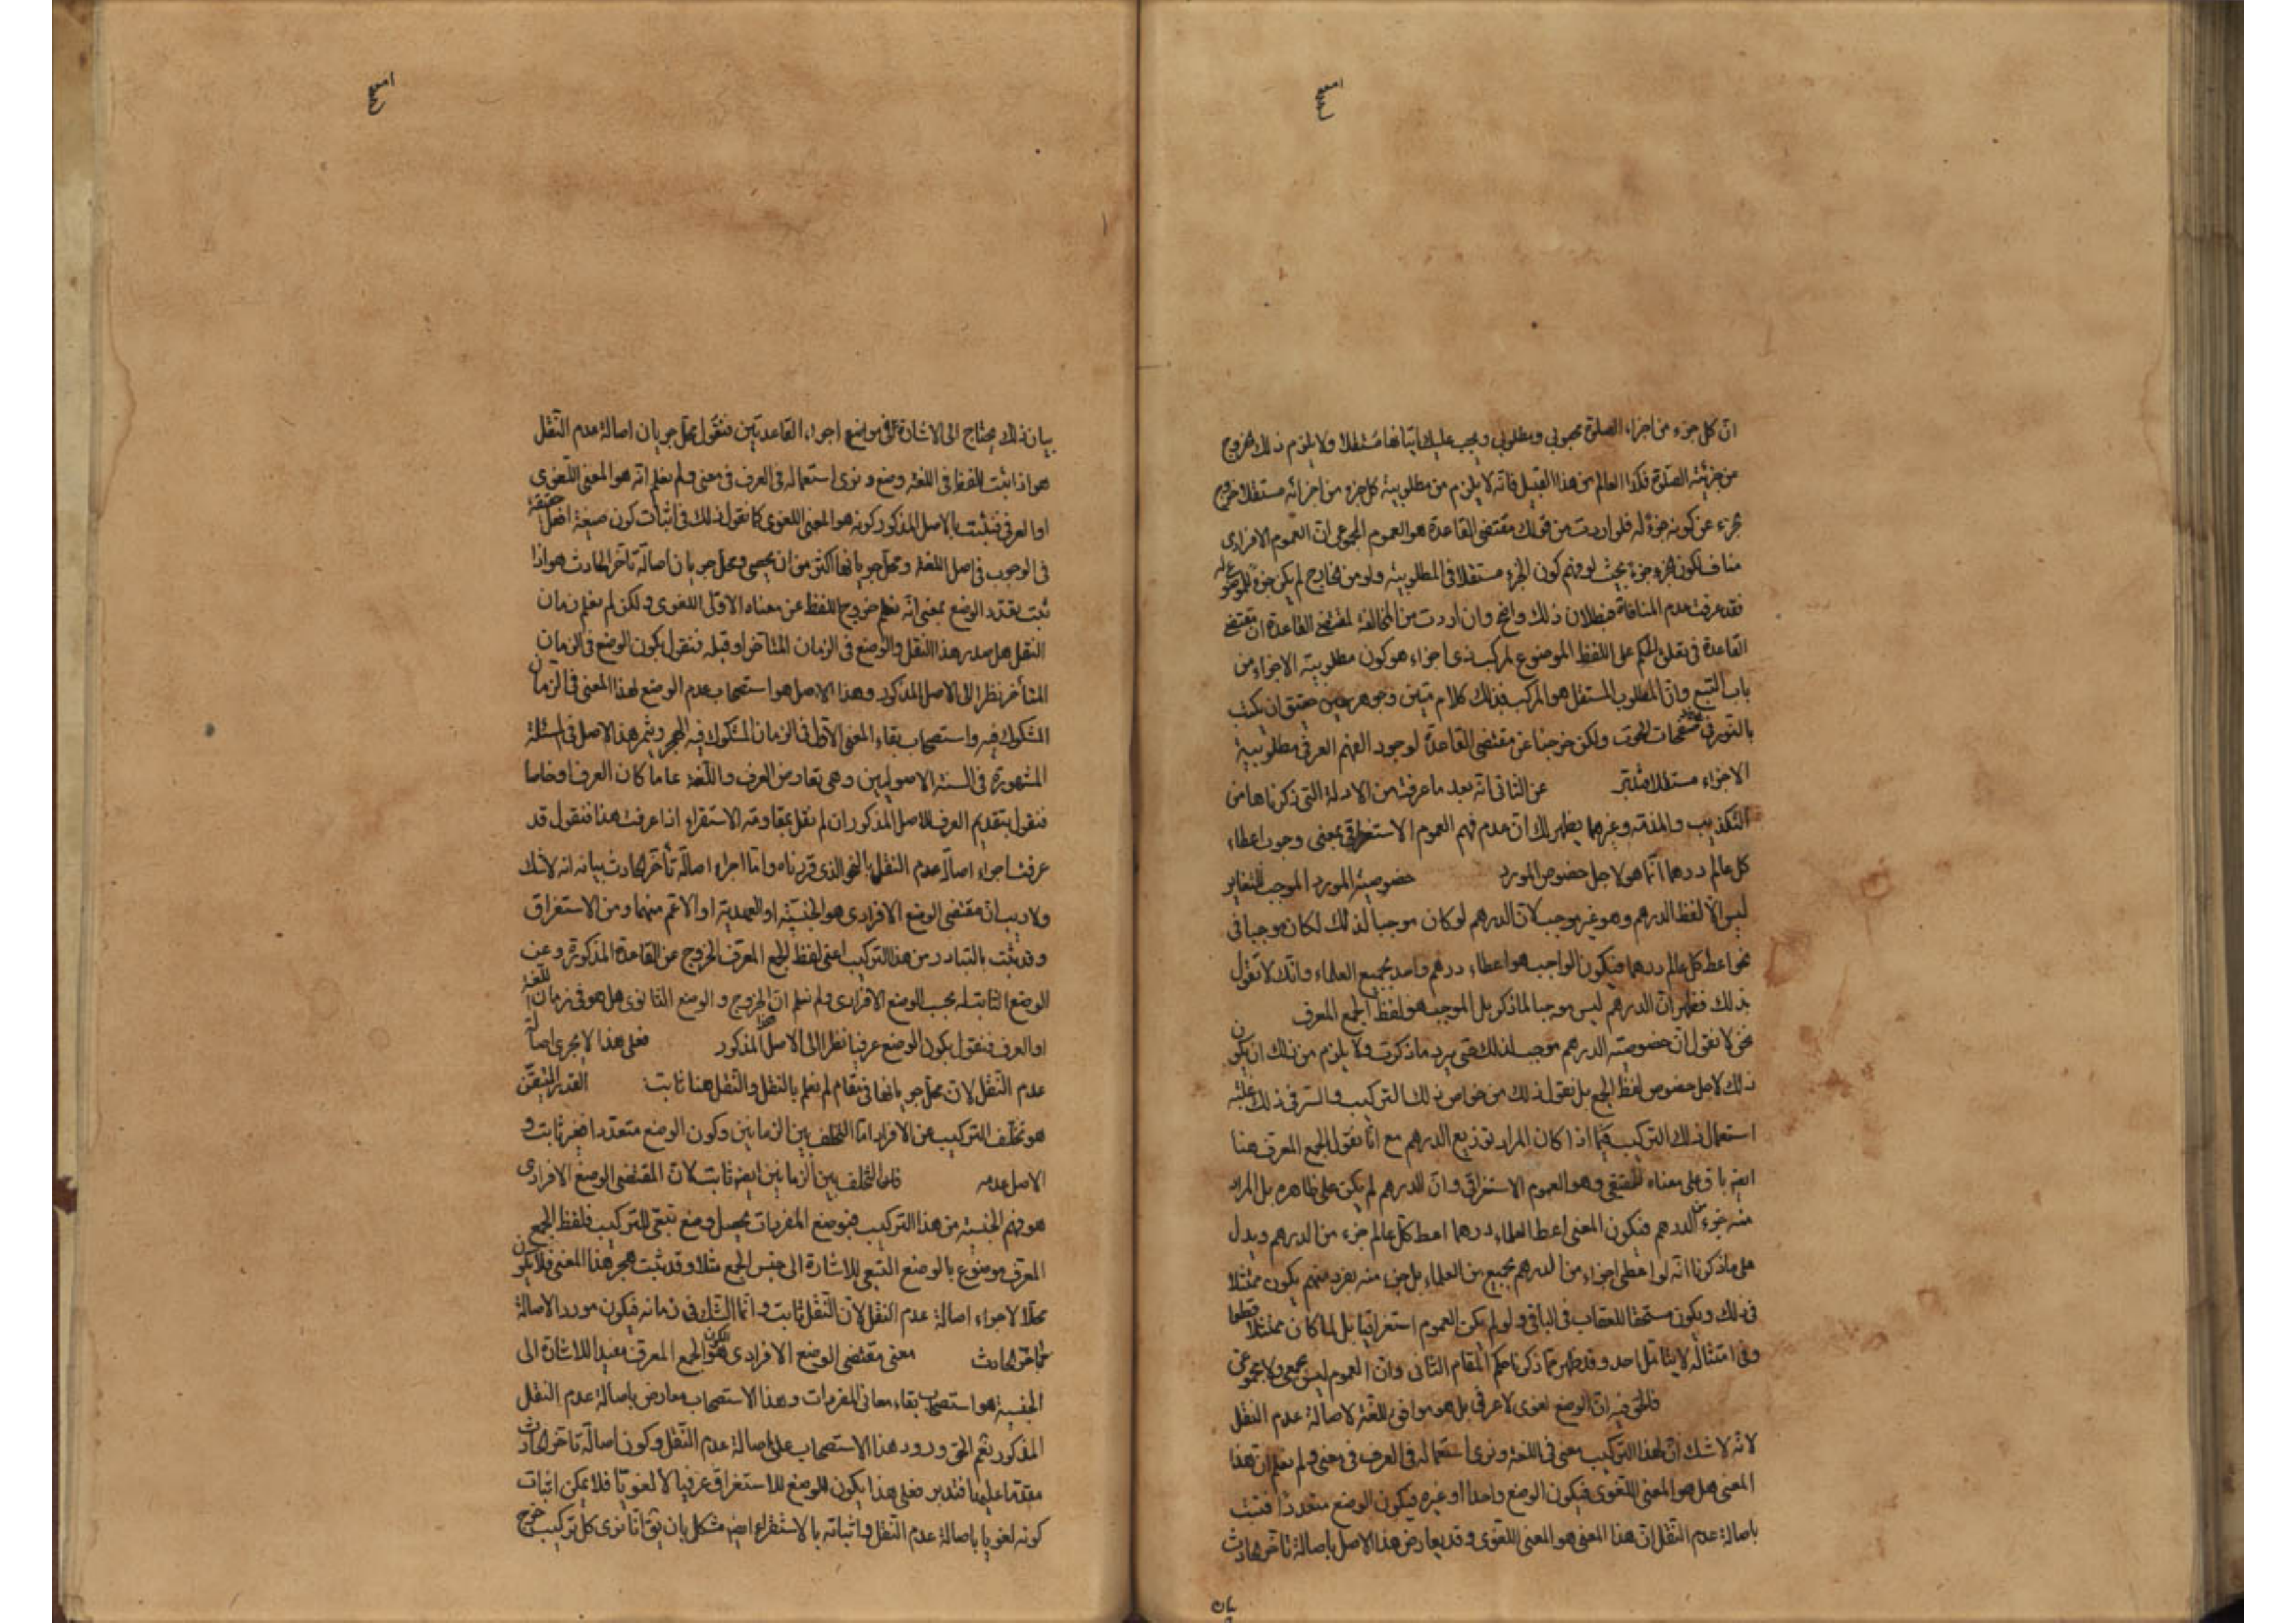 ان كل جزء من اجزاء الصلوة محبوبي ومطلوبي ويجب عليك اتيانها مستقلا ولا يلزم ذلك خروج
من جزئية الصلوة فكذا العالم من هذا القبيل فانه لا يلزم من مطلوبية كل جزء من اجزائه مستقلا خروج
جزء عن كونه جزء له فلو اردت من قولك مقتضى القاعدة هو العموم المجموعي ان العموم الافرادي
مناف لكون الجزء جزء بحيث لو فهم كون الجزء مستقلا في المطلوبية ولو من الخارج لم يكن جزء للموضوع له
فقد عرفت عدم المنافاة فبطلان ذلك واضح وان اردت من المخالفة لمقتضى القاعدة ان مقتضى
القاعدة في تعلق الحكم على اللفظ الموضوع لمركب ذي اجزاء هو كون مطلوبية الاجزاء من
باب التبع وان المطلوب المستقل هو المركب فذلك كلام متين وجوهر ثمين حقيق ان يكتب
بالنور في صفحات ولكن خرجنا عن مقتضى القاعدة لوجود الفهم العرفي مطلوبية
الاجزاء مستقلا فتدبر عن الثاني انه بعد ما عرفت من الادلة التي ذكرناها من
التكذيب والمذمة وغيرهما يظهر لك ان عدم فهم العموم الاستغراقي بمعنى وجوب اعطاء
كل عالم درهما انما هو لاجل خصوص المورد خصوصية المورد الموجب للتغاير
ليس الا لفظ الدرهم وهو غير موجب لان الدرهم لو كان موجبا لذلك لكان موجبا في
نحو اعط كل عالم درهما فيكون الواجب هو اعطاء درهم واحد لجميع العلماء وانك لا تقول
بذلك فظهر ان الدرهم ليس موجبا لما ذكر بل الموجب هو لفظ الجمع المعرف
نحن لا نقول ان خصوصية الدرهم موجب لذلك حتى يرد ما ذكرت ولا يلزم من ذلك ان يكون
ذلك لاجل خصوص لفظ الجمع بل نقول ذلك من خواص ذلك التركيب والسر في ذلك غلبة
استعمال ذلك التركيب فيما اذا كان المراد توزيع الدرهم مع انا نقول الجمع المعرف هنا
ايضا باق على معناه الحقيقي وهو العموم الاستغراقي وان الدرهم لم يكن على ظاهره بل المراد
منه جزء من الدرهم فيكون المعنى اعط العلماء درهما اعط كل عالم جزء من الدرهم ويدل
على ما ذكرنا انه لو اعطى اجزاء من الدرهم لجميع من العلماء بل جزء منه بفرد منهم يكون ممتثلا
في ذلك ويكون مستحقا للعقاب في الباقي ولو لم يكن العموم استغراقيا بل لما كان ممتثلا قطعا
وفي امتثاله لا يتامل احد وقد ظهر مما ذكرنا حكم المقام الثاني وان العموم ليس جمعي ولا مجموعي
فالحق فيه ان الوضع لغوي لا عرفي بل هو موافق للغة لاصالة عدم النقل
لانه لا شك ان لهذا التركيب معنى في اللغة ونرى استعماله في العرف في معنى ولم نعلم ان هذا
المعنى هل هو المعنى اللغوي فيكون الوضع واحدا او غيره فيكون الوضع متعددا فنثبت
باصالة عدم النقل ان هذا المعنى هو المعنى اللغوي وقد يعارض هذا الاصل باصالة تاخر الحادث
بيان ذلك يحتاج الى الاشارة الى مواضع اجراء القاعدتين فنقول محل جريان اصالة عدم النقل
هو اذا ثبت للفظ في اللغة وضع ونرى استعماله في العرف في معنى ولم نعلم انه هو المعنى اللغوي
او العرفي فنثبت بالاصل المذكور كونه هو المعنى اللغوي كما نقول ذلك في اثبات كون صيغة افعل حقيقة
في الوجوب في اصل اللغة ومحل جريانها اكثر من ان يحصى ومحل جريان اصالة تاخر الحادث هو اذا
ثبت تعدد الوضع بمعنى انه نعلم خروج اللفظ عن معناه الاول اللغوي ولكن لم نعلم زمان
النقل هل صدر هذا النقل والوضع في الزمان المتاخر او قبله فنقول بكون الوضع في الزمان
المتاخر نظرا الى الاصل المذكور وهذا الاصل هو استصحاب عدم الوضع لهذا المعنى في الزمان
المشكوك فيه واستصحاب بقاء المعنى الاول في الزمان المشكوك فيه الهجر ويثمر هذا الاصل في المسئلة
المشهورة في السنة الاصوليين وهي تعارض العرف واللغة عاما كان العرف او خاصا
فنقول بتقديم العرف للاصل المذكور ان لم نقل بمقاومة الاستقراء اذا عرفت هذا فنقول قد
عرفت اجراء اصالة عدم النقل بالنحو الذي قررناه واما اجراء اصالة تاخر الحادث بيانه انه لا شك
ولا ريب ان مقتضى الوضع الافرادي هو الجنسية او العهدية او الاعم منهما ومن الاستغراق
وقد ثبت بالتبادر من هذا التركيب اعني لفظ الجمع المعرف الخروج عن القاعدة المذكورة وعن
الوضع الثابت له بحسب الوضع الافرادي ولم نعلم ان الخروج والوضع الثانوي هل هو في زمان اللغة
او العرف فنقول بكون الوضع عرفيا نظرا الى الاصل المذكور فعلى هذا لا يجري اصالة
عدم النقل لان محل جريانها في مقام لم نعلم بالنقل والنقل هنا ثابت القدر المتيقن
هو تخلف التركيب عن الافراد اما التخلف بين الزمانين وكون الوضع متعددا فغير ثابت و
الاصل عدمه فان التخلف بين الزمانين ايضا ثابت لان المقتضى الوضع الافرادي
هو فهم الجنسية من هذا التركيب فبوضع المفردات يحصل وضع تبعي للتركيب فلفظ الجمع
المعرف موضوع بالوضع التبعي للاشارة الى جنس الجمع مثلا وقد ثبت هجر هذا المعنى فلا يكون
محلا لاجراء اصالة عدم النقل لان النقل ثابت وانما الشك في زمانه فيكون مورد الاصالة
تاخر الحادث معنى مقتضى الوضع الافرادي هو كون الجمع المعرف مفيدا للاشارة الى
الجنسية هو استصحاب بقاء معاني المفردات وهذا الاستصحاب معارض باصالة عدم النقل
المذكور نعم الحق ورود هذا الاستصحاب على اصالة عدم النقل وكون اصالة تاخر الحادث
مقدما عليها فتدبر فعلى هذا يكون الوضع للاستغراق عرفيا لا لغويا فلا يمكن اثبات
كونه لغويا باصالة عدم النقل واثباته بالاستقراء ايضا مشكل بان يق انا نرى كل تركيب خرج